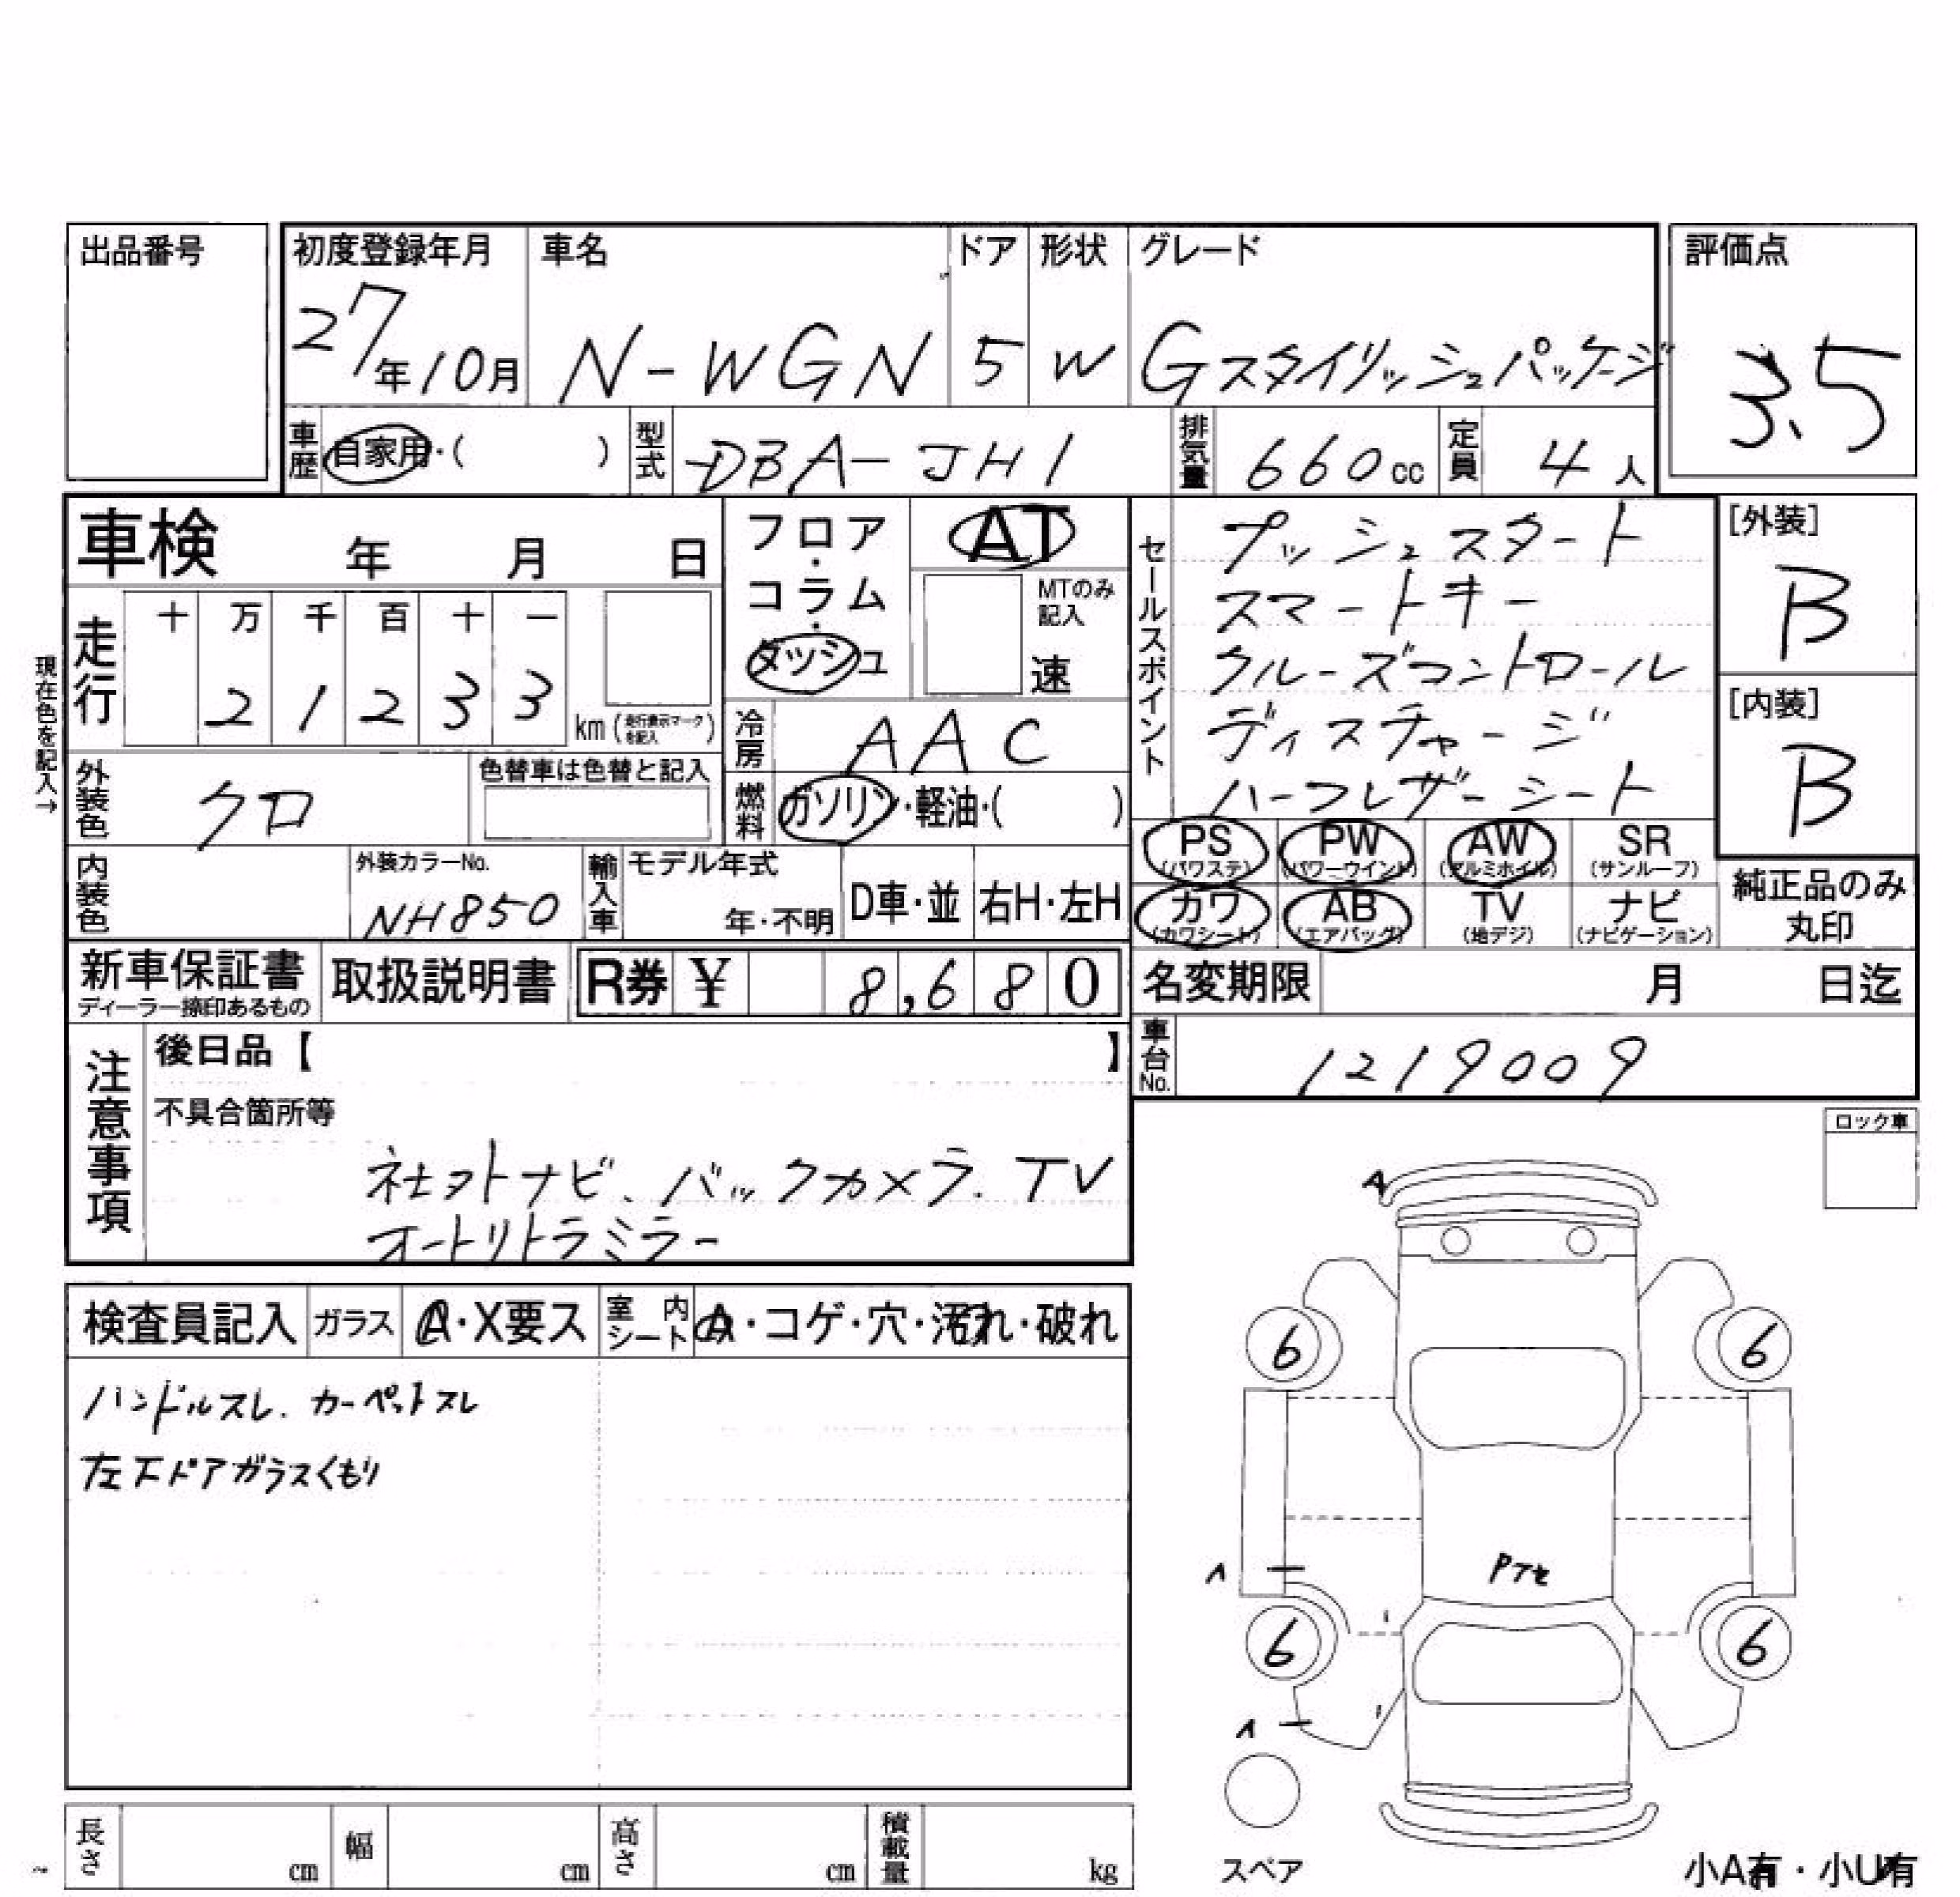 出品番号
初度登録年月 車名 ドア 形状 グレード 評価点
27年10月 N-WGN 5 W Gスタイリッシュパッケージ 3.5
車歴 自家用・( ) 型式 DBA-JH1 排気量 660cc 定員 4人
車検 年 月 日
フロア・コラム・ダッシュ
AT
MTのみ記入
速
走行 十 万 千 百 十 一
2 1 2 3 3 km(走行表示マークを記入)
現在色を記入→
冷房 AAC
外装色 クロ 色替車は色替と記入
燃料 ガソリン・軽油・( )
内装色 外装カラーNo. NH850
輸入車 モデル年式 年・不明 D車・並 右H・左H
セールスポイント
プッシュスタート
スマートキー
クルーズコントロール
ディスチャージ
ハーフレザーシート
[外装]
B
[内装]
B
PS(パワステ) PW(パワーウインド) AW(アルミホイル) SR(サンルーフ)
カワ(カワシート) AB(エアバッグ) TV(地デジ) ナビ(ナビゲーション)
純正品のみ丸印
新車保証書 ディーラー捺印あるもの 取扱説明書 R券 ¥ 8,680
名変期限 月 日迄
車台No. 1219009
注意事項
後日品【 】
不具合箇所等
社外ナビ、バックカメラ、TV
オートリトラミラー
ロック車
検査員記入 ガラス A・X要ス 室内シート A・コゲ・穴・汚れ・破れ
ハンドルスレ、カーペットスレ
左下ドアガラスくもり
A
6 6
6 6
スペア
長さ cm 幅 cm 高さ cm 積載量 kg
小A有・小U有